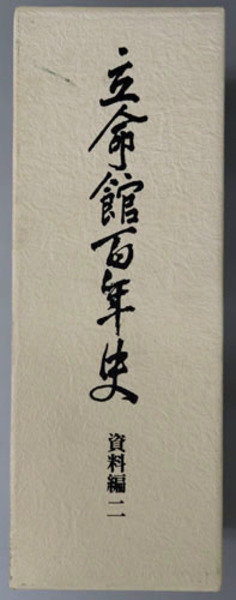 立命館百年史
資料編二